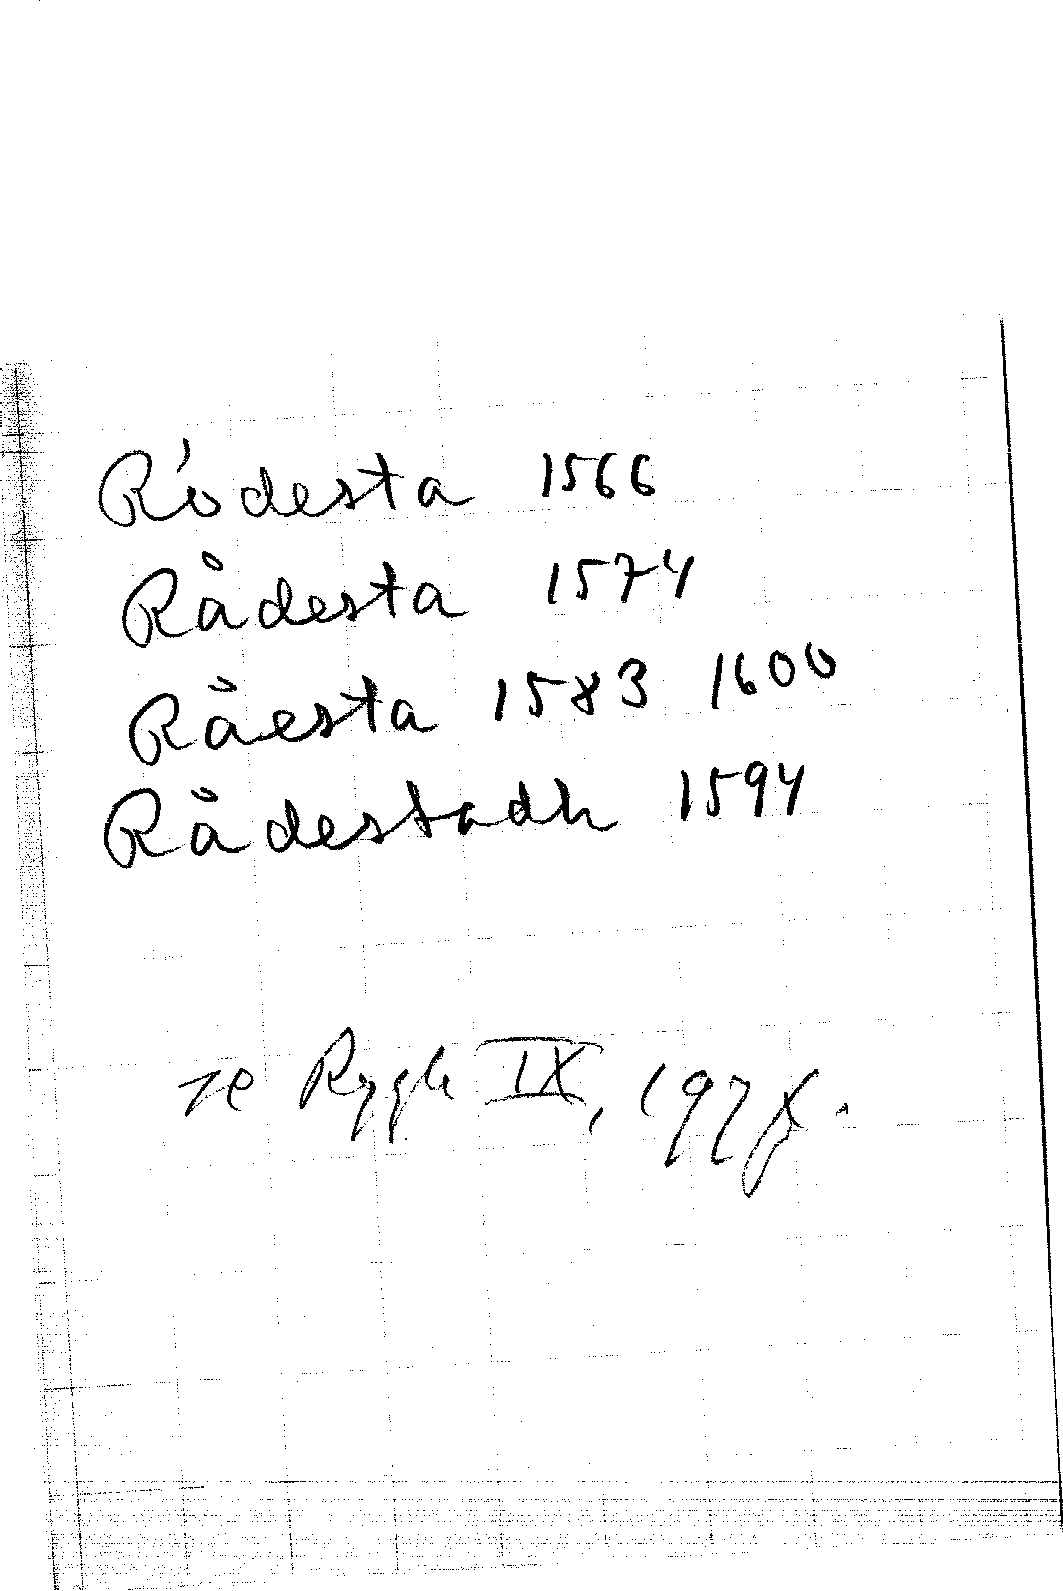 Ródesta 1566
Rådesta 1574
Råesta 1583 1600
Rådestadh 1594
se Rygh IX, 197 f.